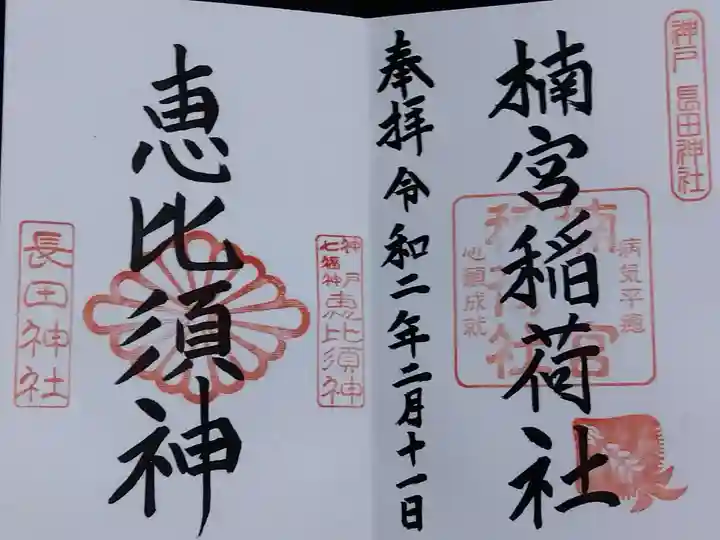 神戸 長田神社
楠宮稲荷社
病気平癒
楠宮
稲荷社
心願成就
奉拝令和二年二月十一日
恵比須神
神戸
七福神
恵比須神
長田神社